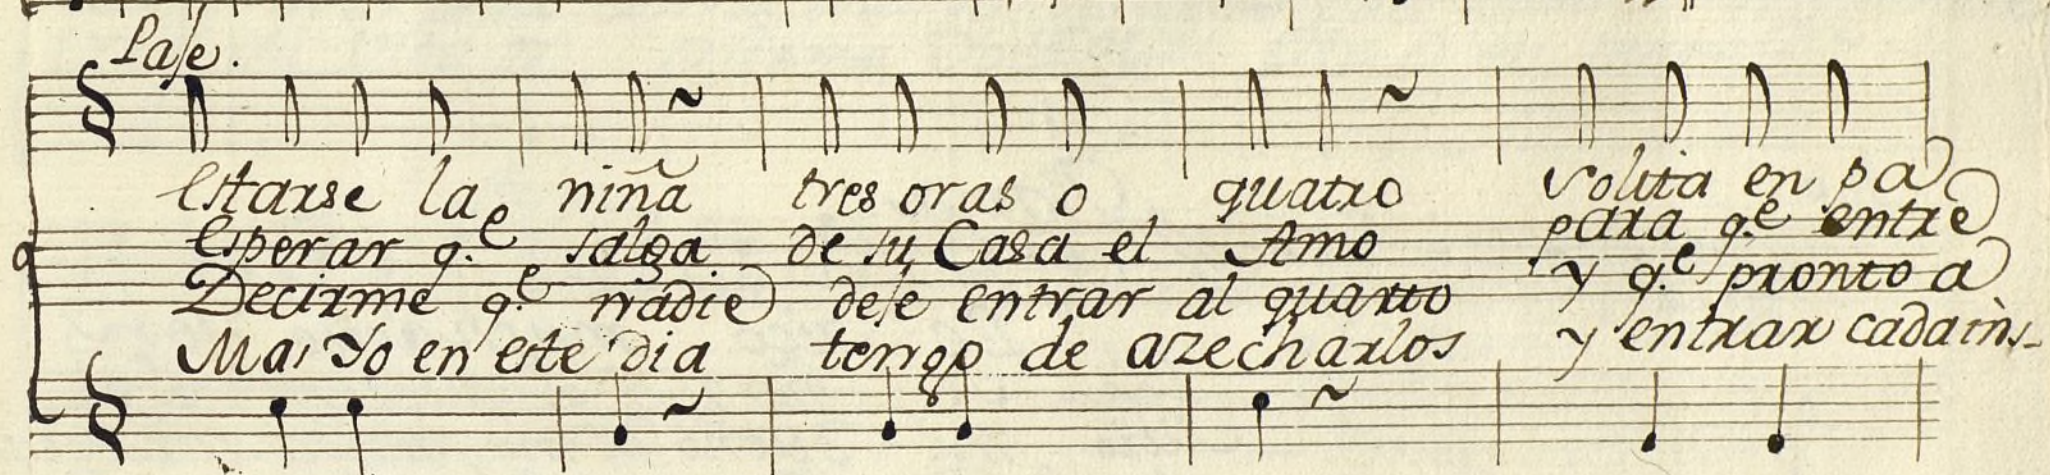 Paje.
Estarse la niña tres oras o quatro Solita en pa
Esperar q.e salga de su Casa el Amo para q.e entre
Decirme q.e nadie deje entrar al quarto y q.e pronto a
Mas Yo en este dia tengo de azecharlos y entrar cada ins-